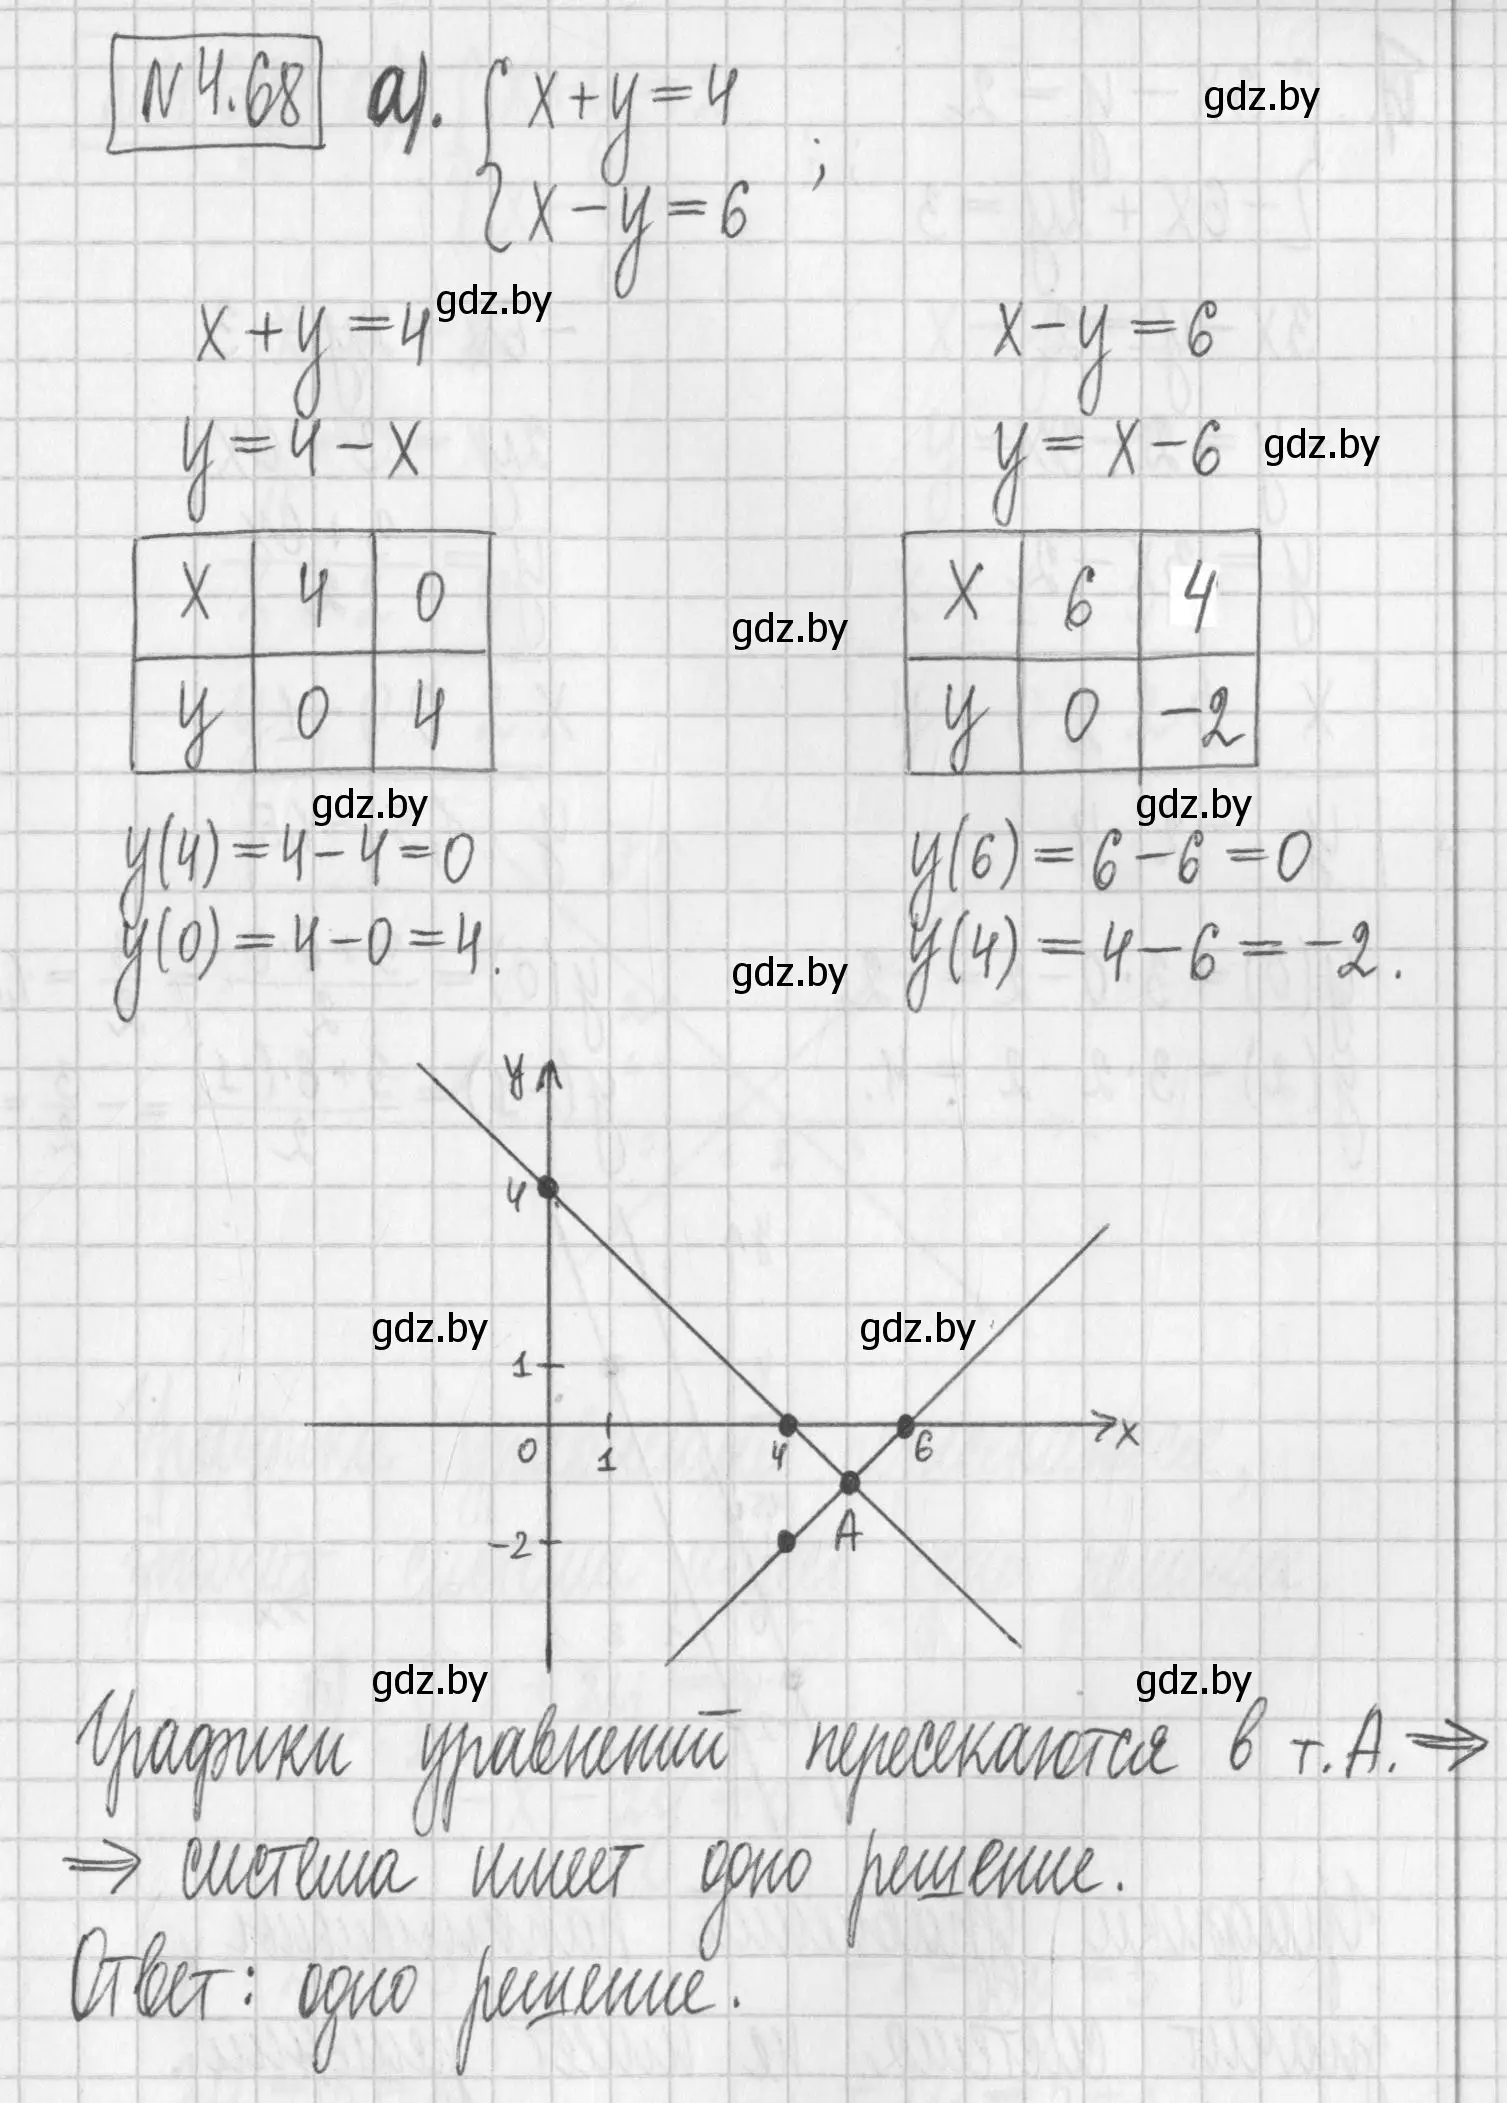 № 4.68 а). { x + y = 4
gdz.by
{ x - y = 6 ;
gdz.by
x + y = 4 x - y = 6
y = 4 - x y = x - 6 gdz.by
x 4 0 x 6 4
gdz.by
y 0 4 y 0 -2
gdz.by gdz.by
y(4) = 4 - 4 = 0 y(6) = 6 - 6 = 0
y(0) = 4 - 0 = 4. y(4) = 4 - 6 = -2.
gdz.by
y
4
gdz.by gdz.by
1
0 1 4 6 x
-2 A
gdz.by gdz.by
Графики уравнений пересекаются в т. А. ⇒
⇒ система имеет одно решение.
Ответ: одно решение.